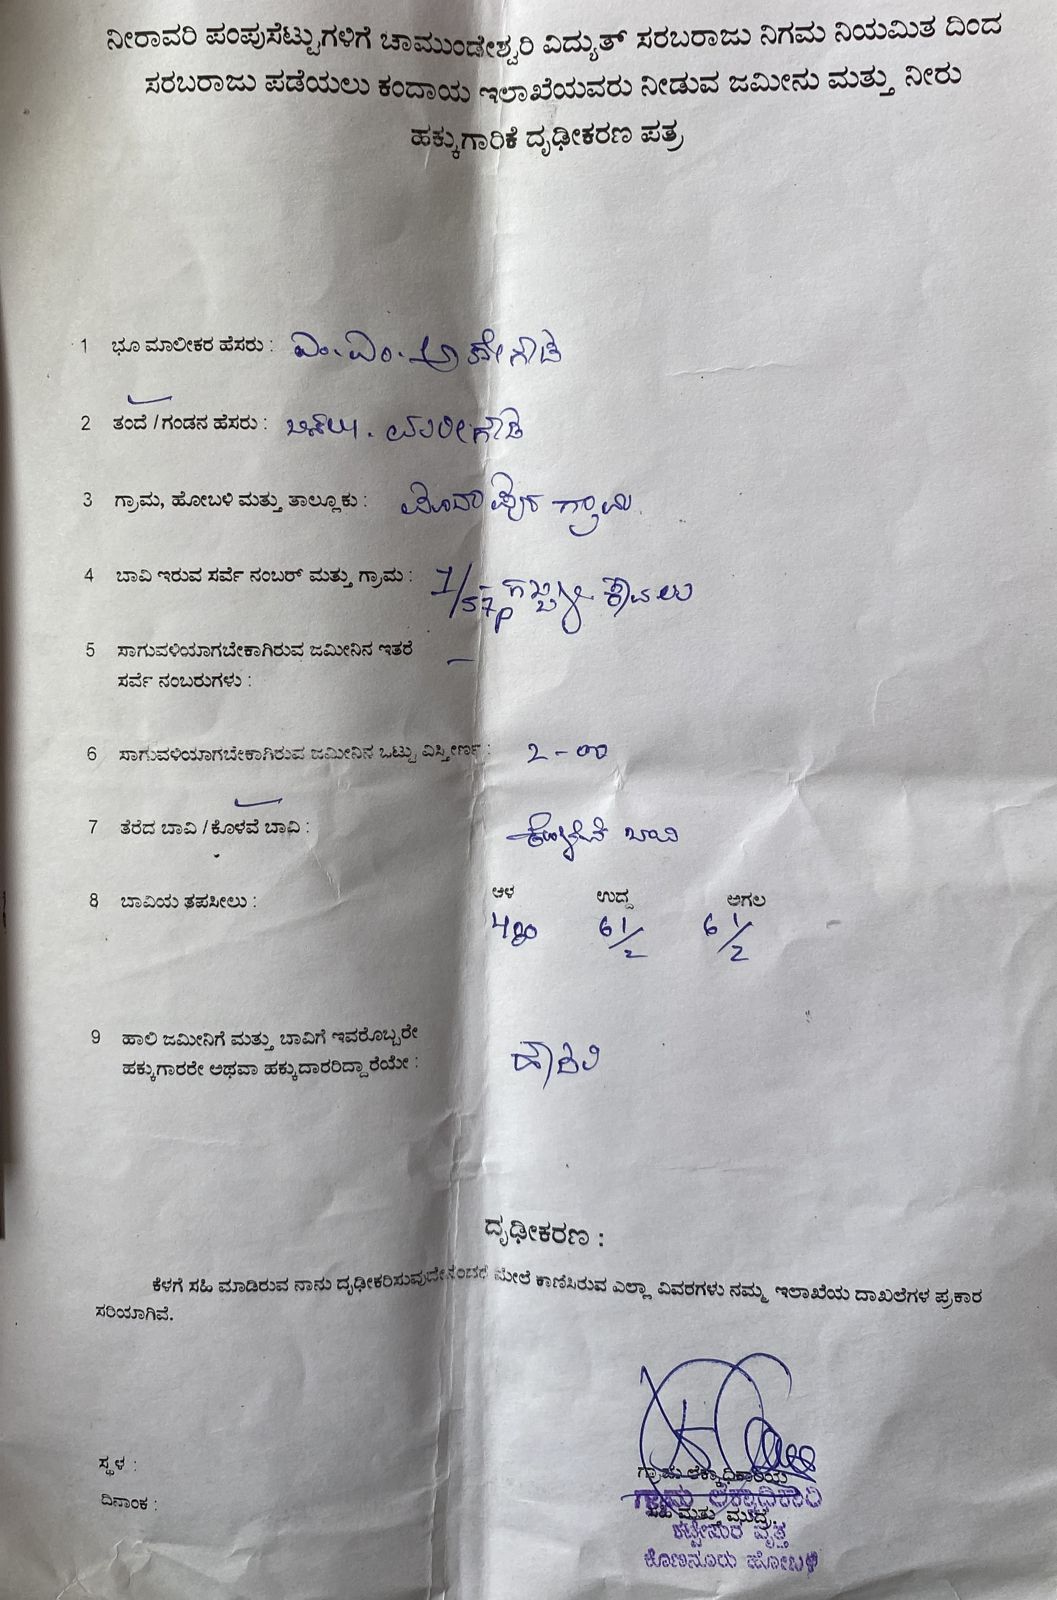 ನೀರಾವರಿ ಪಂಪುಸೆಟ್ಟುಗಳಿಗೆ ಚಾಮುಂಡೇಶ್ವರಿ ವಿದ್ಯುತ್ ಸರಬರಾಜು ನಿಗಮ ನಿಯಮಿತ ದಿಂದ
ಸರಬರಾಜು ಪಡೆಯಲು ಕಂದಾಯ ಇಲಾಖೆಯವರು ನೀಡುವ ಜಮೀನು ಮತ್ತು ನೀರು
ಹಕ್ಕುಗಾರಿಕೆ ದೃಢೀಕರಣ ಪತ್ರ
1 ಭೂ ಮಾಲೀಕರ ಹೆಸರು : ಎಂ.ಎಂ.
2 ತಂದೆ / ಗಂಡನ ಹೆಸರು :
3 ಗ್ರಾಮ, ಹೋಬಳಿ ಮತ್ತು ತಾಲ್ಲೂಕು : ಗ್ರಾಮ
4 ಬಾವಿ ಇರುವ ಸರ್ವೆ ನಂಬರ್ ಮತ್ತು ಗ್ರಾಮ : 1/57p ಕಾವಲು
5 ಸಾಗುವಳಿಯಾಗಬೇಕಾಗಿರುವ ಜಮೀನಿನ ಇತರೆ —
ಸರ್ವೆ ನಂಬರುಗಳು :
6 ಸಾಗುವಳಿಯಾಗಬೇಕಾಗಿರುವ ಜಮೀನಿನ ಒಟ್ಟು ವಿಸ್ತೀರ್ಣ : 2-00
7 ತೆರೆದ ಬಾವಿ / ಕೊಳವೆ ಬಾವಿ : ಕೊಳವೆ ಬಾವಿ
8 ಬಾವಿಯ ತಪಸೀಲು : ಆಳ ಉದ್ದ ಅಗಲ
6 1/2 6 1/2
9 ಹಾಲಿ ಜಮೀನಿಗೆ ಮತ್ತು ಬಾವಿಗೆ ಇವರೊಬ್ಬರೇ
ಹಕ್ಕುಗಾರರೇ ಅಥವಾ ಹಕ್ಕುದಾರರಿದ್ದಾರೆಯೇ :
ದೃಢೀಕರಣ :
ಕೆಳಗೆ ಸಹಿ ಮಾಡಿರುವ ನಾನು ದೃಢೀಕರಿಸುವುದೇನೆಂದರೆ ಮೇಲೆ ಕಾಣಿಸಿರುವ ಎಲ್ಲಾ ವಿವರಗಳು ನಮ್ಮ ಇಲಾಖೆಯ ದಾಖಲೆಗಳ ಪ್ರಕಾರ
ಸರಿಯಾಗಿವೆ.
ಸ್ಥಳ :
ಗ್ರಾಮ ಲೆಕ್ಕಾಧಿಕಾರಿಯ
ಗ್ರಾಮ ಲೆಕ್ಕಾಧಿಕಾರಿ
ದಿನಾಂಕ :
ಸಹಿ ಮತ್ತು ಮುದ್ರೆ.
ವೃತ್ತ
ಕೊಣನೂರು ಹೋಬಳಿ